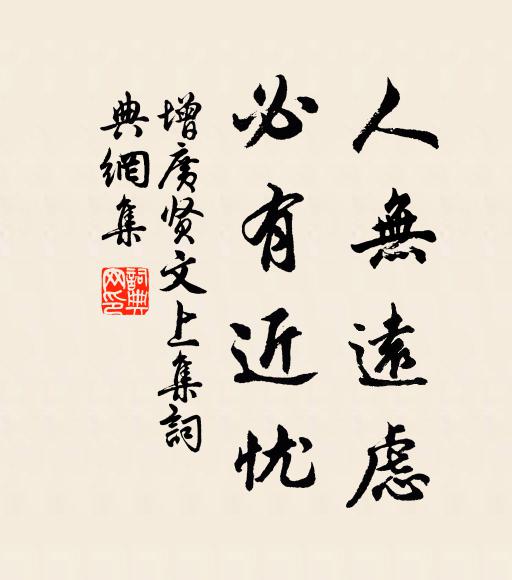 人無遠慮
必有近忧
增廣贤文上集詞
典網集
詞典
网印